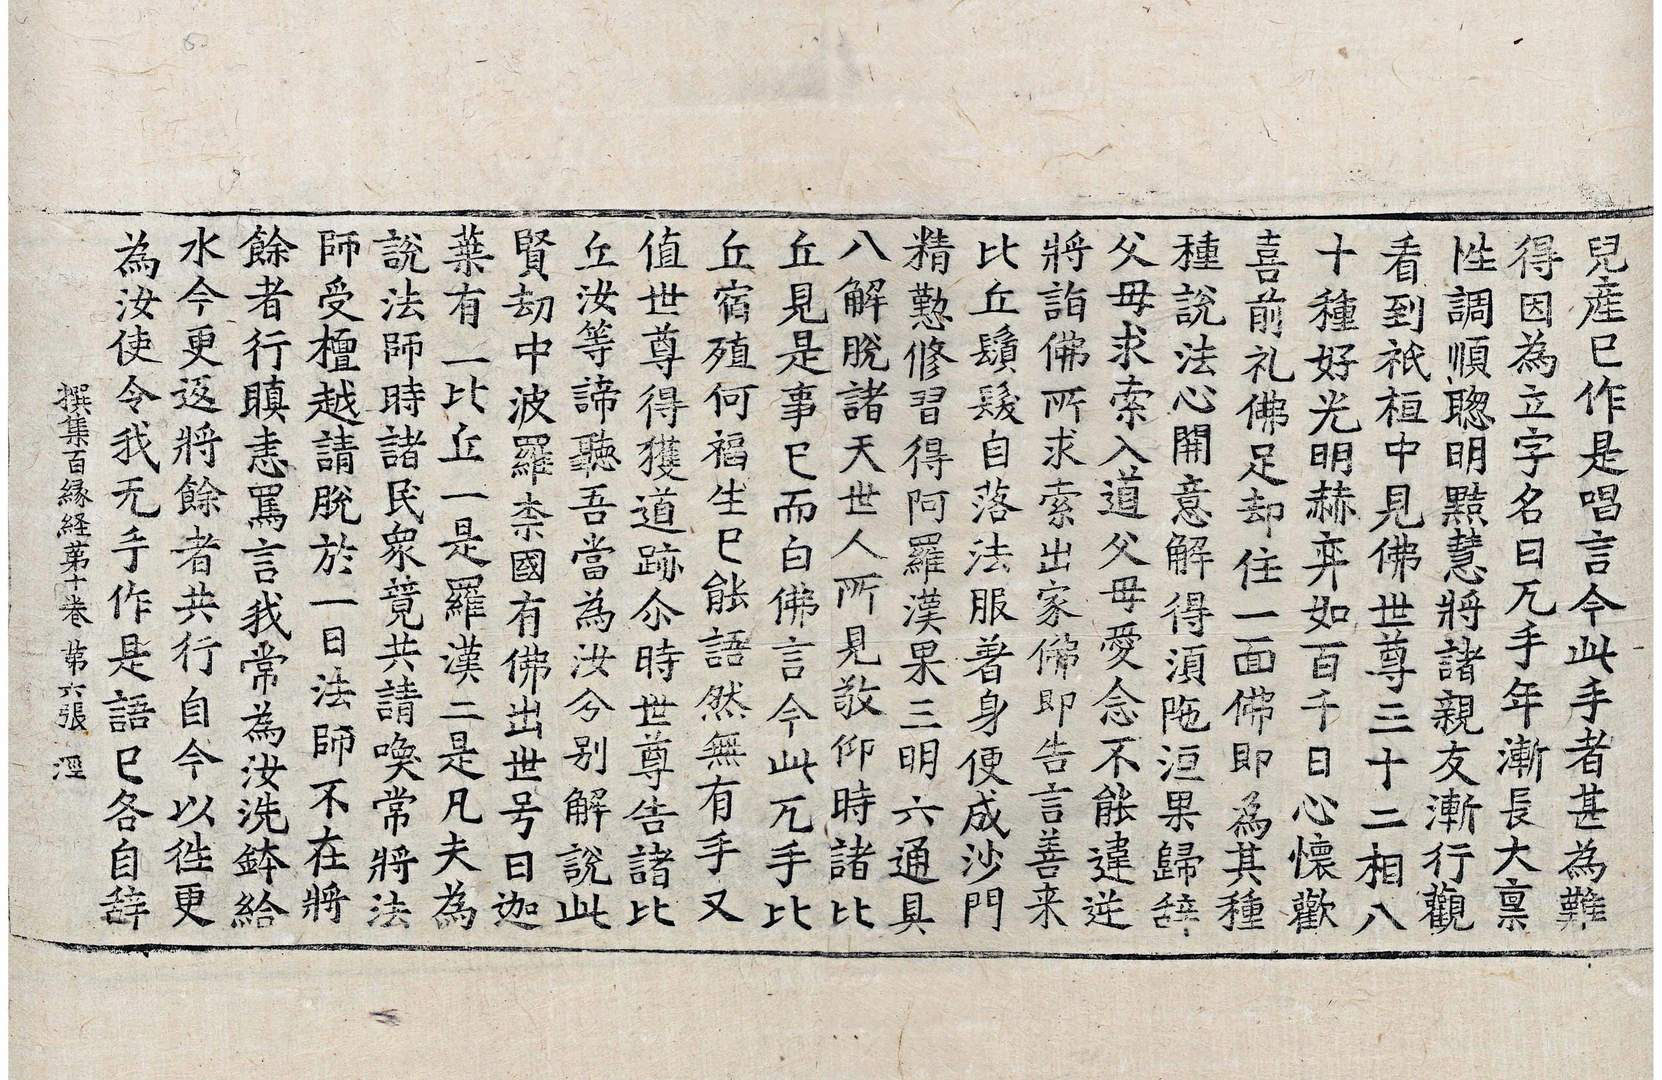 兒產巳作是唱言今此手者甚為難
得因為立字名曰兀手年漸長大稟
性調順聡明黠慧將諸親友漸行觀
看到祇桓中見佛世尊三十二相八
十種好光明赫弈如百千日心懷歡
喜前礼佛足却住一面佛即為其種
種說法心開意解得湏陁洹果歸辝
父母求索入道父母愛念不能違逆
將詣佛所求索出家佛即告言善来
比丘鬚髮自落法服著身便成沙門
精懃修習得阿羅漢果三明六通具
八解脫諸天世人所見敬仰時諸比
丘見是事巳而白佛言今此兀手比
丘宿殖何福生巳能語然無有手又
值世尊得獲道跡尒時世尊告諸比
丘汝等諦聽吾當為汝分别解說此
賢劫中波羅柰國有佛出世号曰迦
葉有一比丘一是羅漢二是凡夫為
說法師時諸民衆竟共請喚常將法
師受檀越請脫於一日法師不在將
餘者行瞋恚罵言我常為汝洗鉢給
水今更返將餘者共行自今以徃更
為汝使令我无手作是語巳各自辝
撰集百緣経苐十卷 苐六張 涇